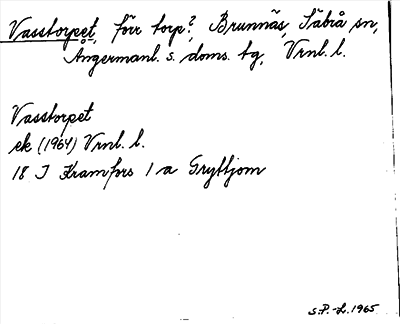 Vasstorpet, förr torp?, Brunnäs, Säbrå sn,
Ångermanl. s. doms. tg, Vrnl. l.
Vasstorpet
ek (1964) Vrnl. l.
18 J Kramfors 1 a Gryttjom
S.P.-L. 1965